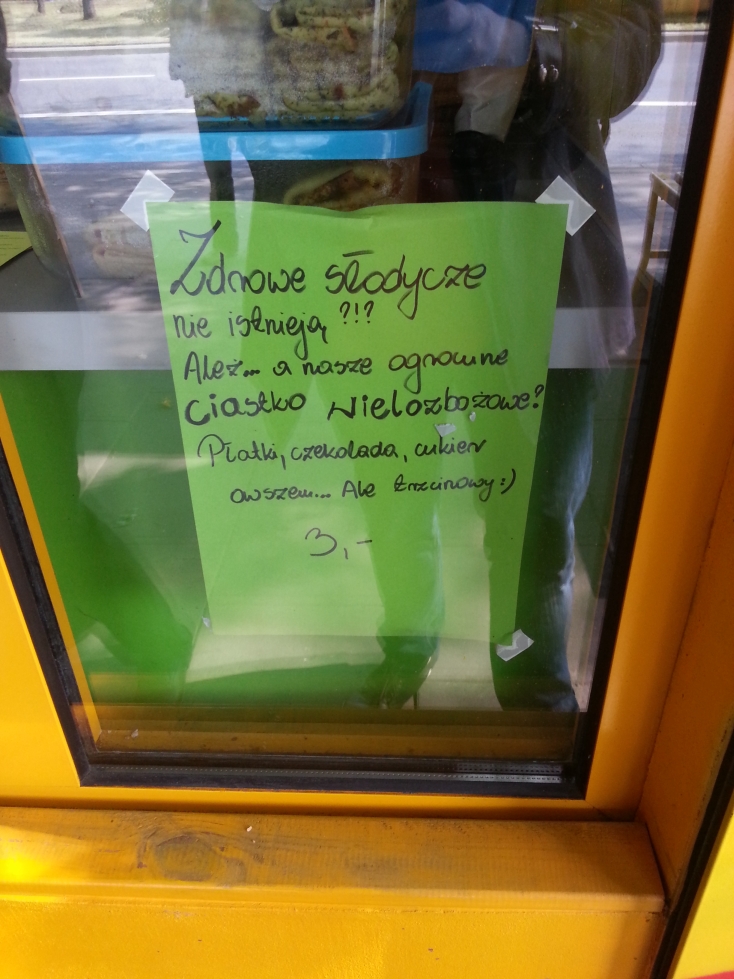 Zdrowe słodycze
nie istnieją ?!?
Ależ... a nasze ogromne
ciastko wielozbożowe?
Płatki, czekolada, cukier
owszem... Ale trzcinowy :)
3,-